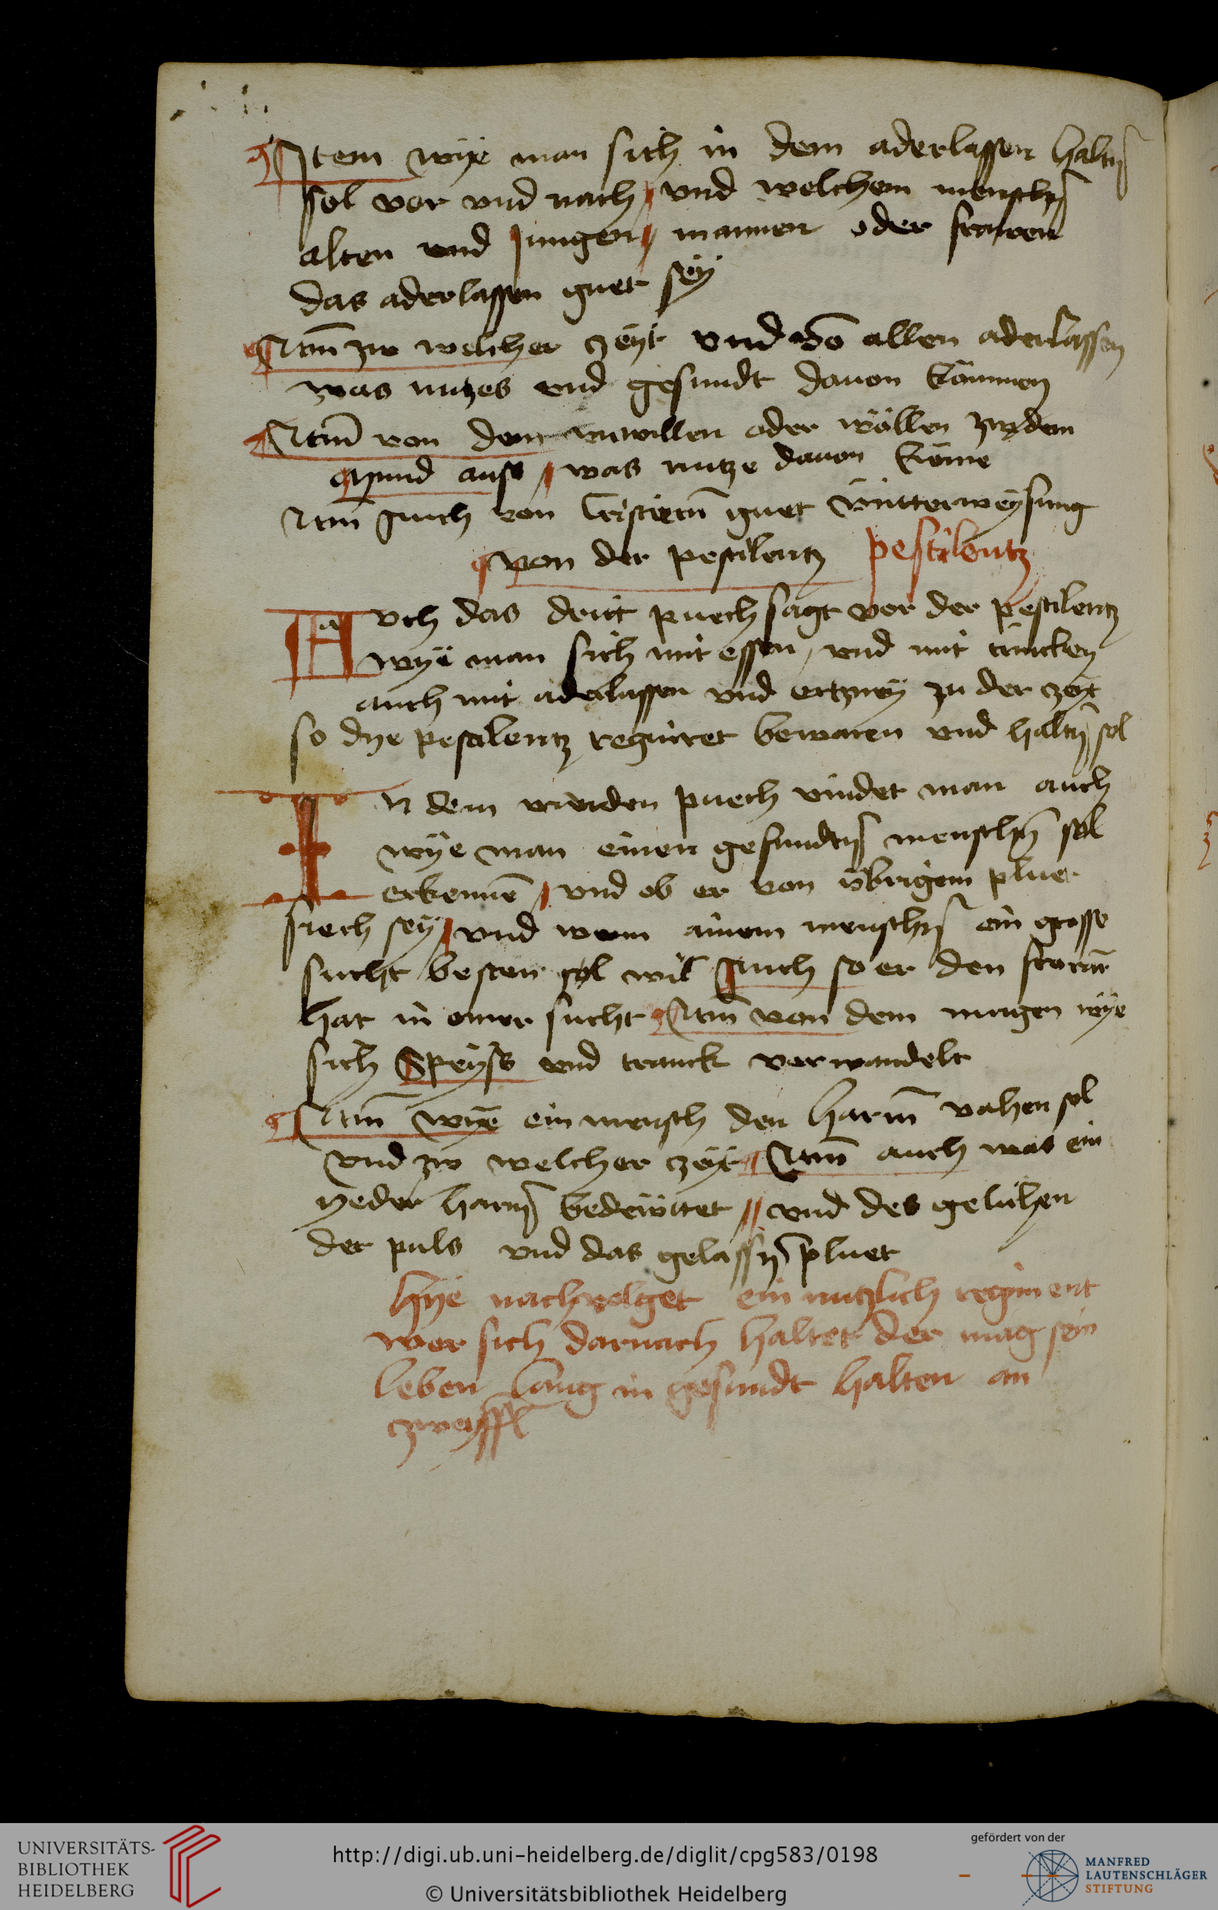 Item wye man sich in dem aderlassen haltn
sol vor vnd nach vnd welchem menschn
alten vnd jungen mannen oder frawen
das aderlassen guet sey
Itm̄ zw welcher zeyt vnd vō allen aderlassen
was nutzes vnd gesundt dauon kömmen
Itm̄ von dem vnwillen oder wöllen zw dem
mund auss was nutze dauon köme
Itm̄ auch von Cristirn̄ guet vntterweysung
von der pestilentz pestilentz
Auch das drit puech sagt vor der pestilentz
wye man sich mit essen vnd mit trincken
auch mit aderlassen vnd ertzney zu der zeyt
so dye pestilentz regirret bewaren vnd haltn sol
In dem virden puech vindet man auch
wye man einen gesundtn menschn sol
erkennē vnd ob er von vbrigem pluet
siech sey vnd wenn ainem menschn ein grosse
sucht besten wil auch so er den
hat in einer sucht Itm̄ von dem magen wye
sich Speyss vnd tranck verwandelt
Itm̄ wye ein mensch den harm̄ vahen sol
vnd zw welcher zeyt Itm̄ auch was ein
yeder harm̄ bedewttet vnd des geleichen
der puls vnd das gelassn pluet
hye nachvolget ein nutzlich regiment
wer sich darnach haltet der mag sein
leben lang in gesundt halten an
zweyffl
UNIVERSITÄTS-
BIBLIOTHEK
HEIDELBERG
http://digi.ub.uni-heidelberg.de/diglit/cpg583/0198
© Universitätsbibliothek Heidelberg
gefördert von der
MANFRED
LAUTENSCHLÄGER
STIFTUNG